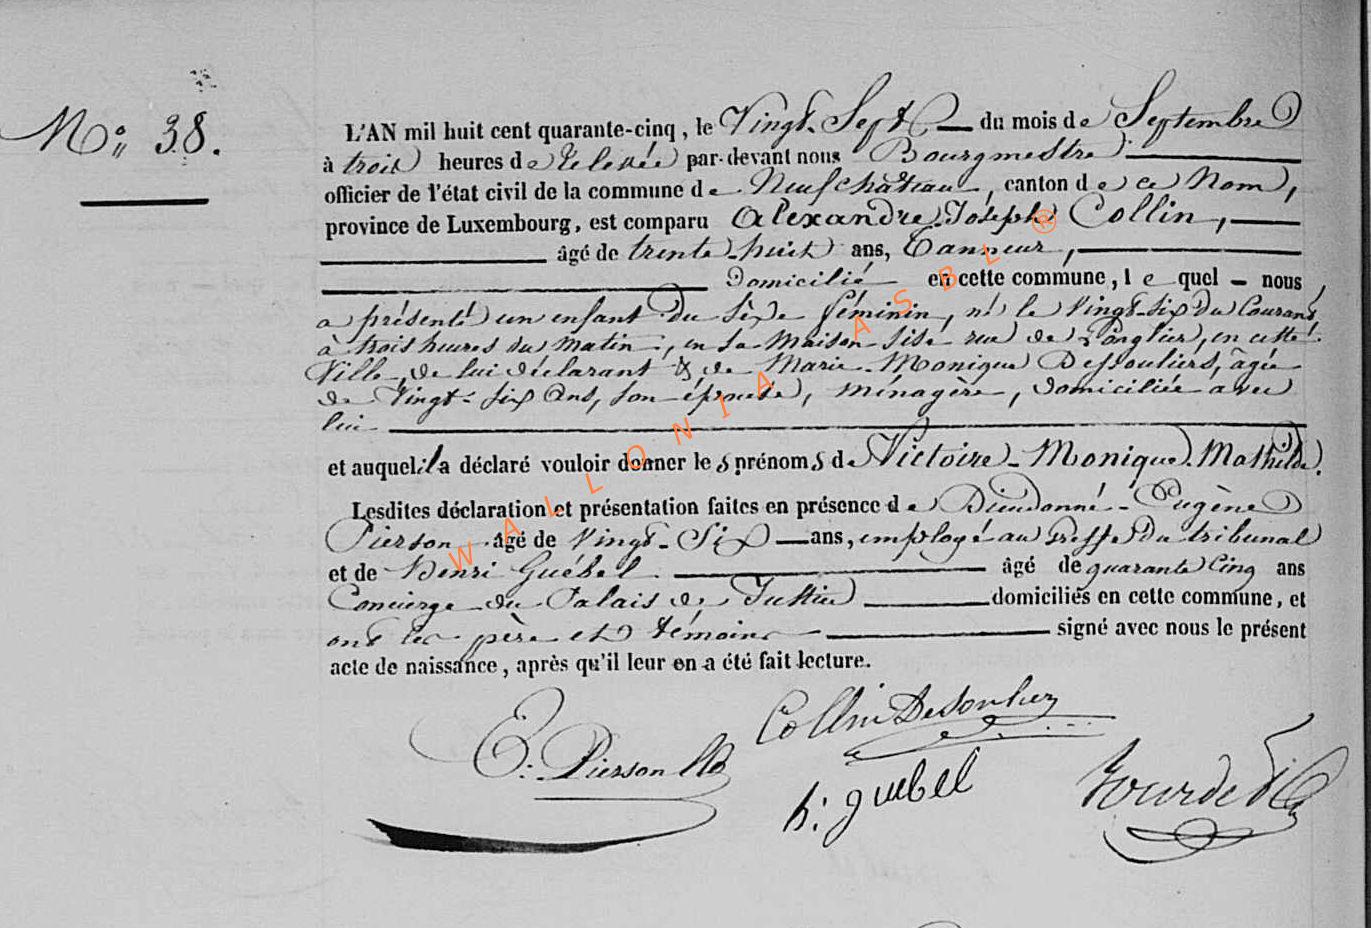 N° 38.
L'AN mil huit cent quarante-cinq, le Vingt-Sept du mois de Septembre
à trois heures de relevée par-devant nous Bourgmestre
officier de l'état civil de la commune de Neufchâteau, canton de ce Nom,
province de Luxembourg, est comparu Alexandre-Joseph Collin,
âgé de trente-huit ans, Tanneur,
Domicilié en cette commune, lequel nous
a présenté un enfant du sèxe féminin, né le Vingt-six du Courant
à trois heures du matin, en sa Maison sise rue de en cette
Ville, de lui déclarant & de Marie-Monique Dessouliers, âgée
de Vingt-six Ans, son épouse, ménagère, domiciliée avec
lui
et auquel il a déclaré vouloir donner les prénoms de Victoire-Monique-Mathilde.
Lesdites déclaration et présentation faites en présence de Dieudonné-Eugène
Pierson âgé de Vingt-Six ans, employé au Greffe du tribunal
et de Henri Guébel âgé de quarante Cinq ans
Concierge du Palais de Justice domiciliés en cette commune, et
ont les père et témoins signé avec nous le présent
acte de naissance, après qu'il leur en a été fait lecture.
Collin
E. Pierson
h: guebel
WALLONIA ASBL ®